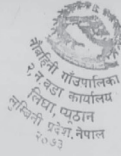 नौवहिनी गाउँपालिका
२ नं वडा कार्यालय
लिघा, प्यूठान
लुम्बिनी प्रदेश, नेपाल
२०७३